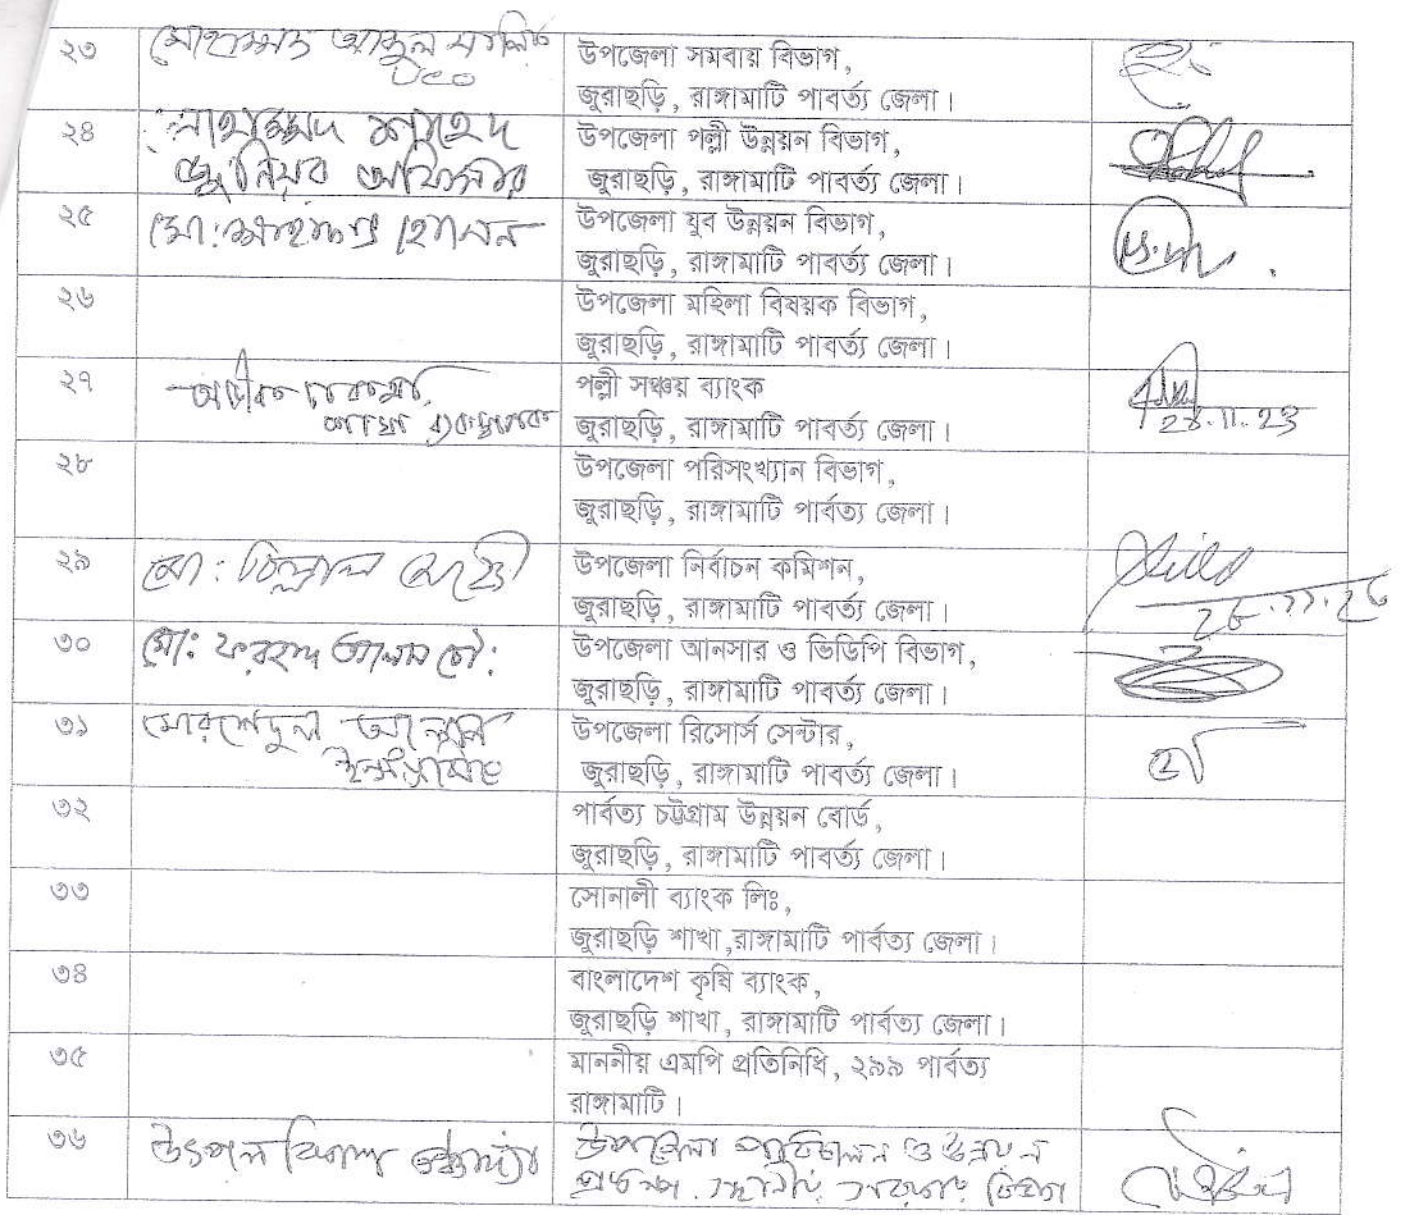 ২৩
মোহাম্মদ আব্দুল
UCO
উপজেলা সমবায় বিভাগ,
জুরাছড়ি, রাঙ্গামাটি পাবর্ত্য জেলা।
২৪
মোহাম্মদ শাহেদ
জুনিয়র অফিসার
উপজেলা পল্লী উন্নয়ন বিভাগ,
জুরাছড়ি, রাঙ্গামাটি পাবর্ত্য জেলা।
২৫
মো: হোসেন
উপজেলা যুব উন্নয়ন বিভাগ,
জুরাছড়ি, রাঙ্গামাটি পাবর্ত্য জেলা।
২৬
উপজেলা মহিলা বিষয়ক বিভাগ,
জুরাছড়ি, রাঙ্গামাটি পাবর্ত্য জেলা।
২৭
চাকমা
শাখা ব্যবস্থাপক
পল্লী সঞ্চয় ব্যাংক
জুরাছড়ি, রাঙ্গামাটি পাবর্ত্য জেলা।
২৮
উপজেলা পরিসংখ্যান বিভাগ,
জুরাছড়ি, রাঙ্গামাটি পার্বত্য জেলা।
২৯
মো:
উপজেলা নির্বাচন কমিশন,
জুরাছড়ি, রাঙ্গামাটি পার্বত্য জেলা।
৩০
মো: ফরহাদ আলম চৌ:
উপজেলা আনসার ও ভিডিপি বিভাগ,
জুরাছড়ি, রাঙ্গামাটি পার্বত্য জেলা।
৩১
মোরশেদুল আলম
ইন্সট্রাক্টর
উপজেলা রিসোর্স সেন্টার,
জুরাছড়ি, রাঙ্গামাটি পাবর্ত্য জেলা।
৩২
পার্বত্য চট্টগ্রাম উন্নয়ন বোর্ড,
জুরাছড়ি, রাঙ্গামাটি পাবর্ত্য জেলা।
৩৩
সোনালী ব্যাংক লিঃ,
জুরাছড়ি শাখা,রাঙ্গামাটি পার্বত্য জেলা।
৩৪
বাংলাদেশ কৃষি ব্যাংক,
জুরাছড়ি শাখা, রাঙ্গামাটি পার্বত্য জেলা।
৩৫
মাননীয় এমপি প্রতিনিধি, ২৯৯ পার্বত্য
রাঙ্গামাটি।
৩৬
উৎপল
উপজেলা পরিচালন ও উন্নয়ন
প্রকল্প, স্থানীয় সরকার বিভাগ